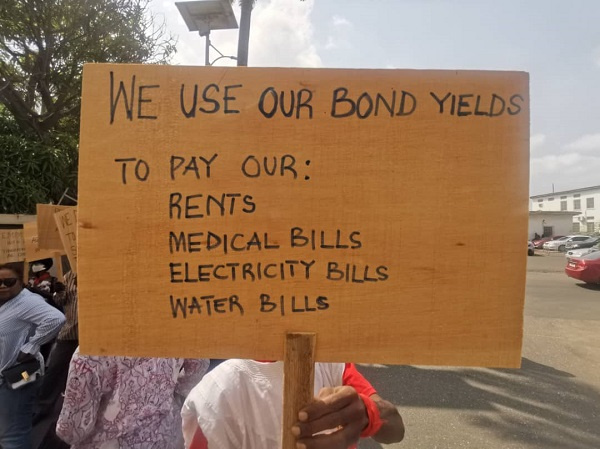 WE USE OUR BOND YIELDS
TO PAY OUR:
RENTS
MEDICAL BILLS
ELECTRICITY BILLS
WATER BILLS